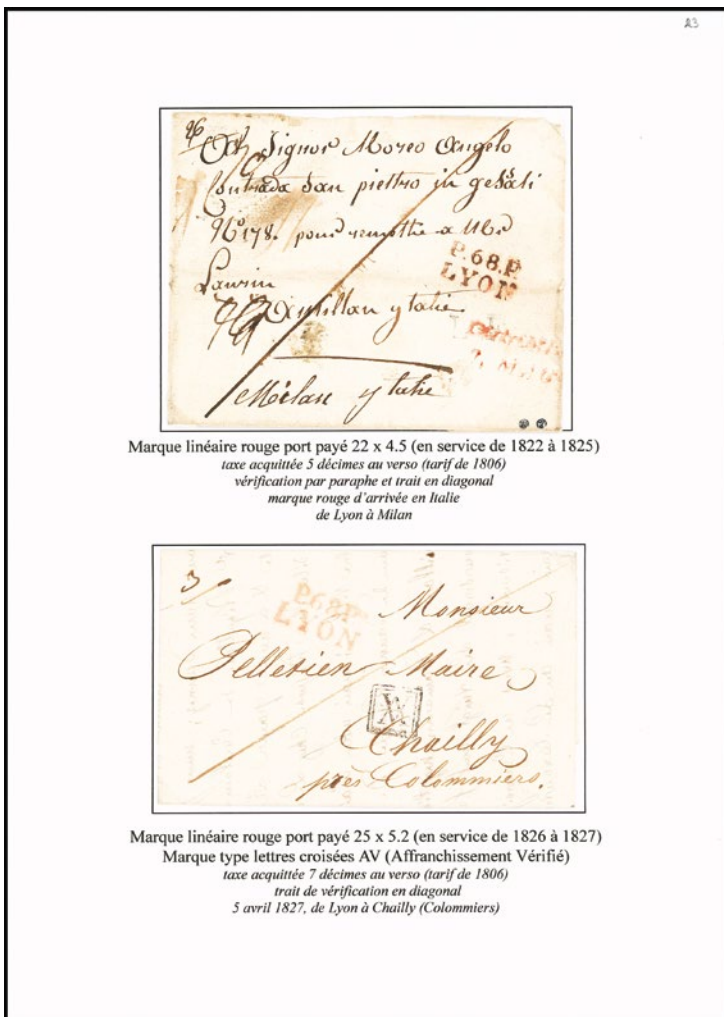 23
96
Al Signor Moreo Angelo
Contrada San piettro in gesati
N° 178. pour remettre a Mr
Laurin
P.68.P.
LYON
Millan ytalie
Milan ytalie
Marque linéaire rouge port payé 22 x 4.5 (en service de 1822 à 1825)
taxe acquittée 5 décimes au verso (tarif de 1806)
vérification par paraphe et trait en diagonal
marque rouge d'arrivée en Italie
de Lyon à Milan
3
P.68.P.
LYON
Monsieur
Pelletier Maire
Chailly
près Colommiers.
Marque linéaire rouge port payé 25 x 5.2 (en service de 1826 à 1827)
Marque type lettres croisées AV (Affranchissement Vérifié)
taxe acquittée 7 décimes au verso (tarif de 1806)
trait de vérification en diagonal
5 avril 1827, de Lyon à Chailly (Colommiers)